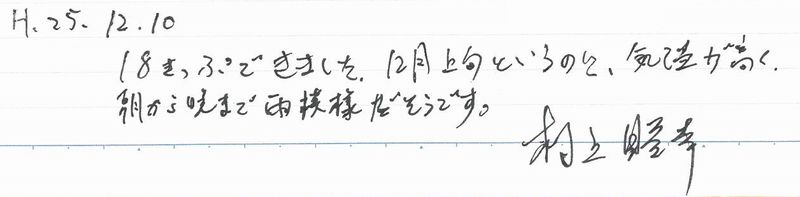 H.25.12.10
18きっぷできました。12月上旬というのに、気温が高く、
朝から晩まで雨模様だそうです。
村上